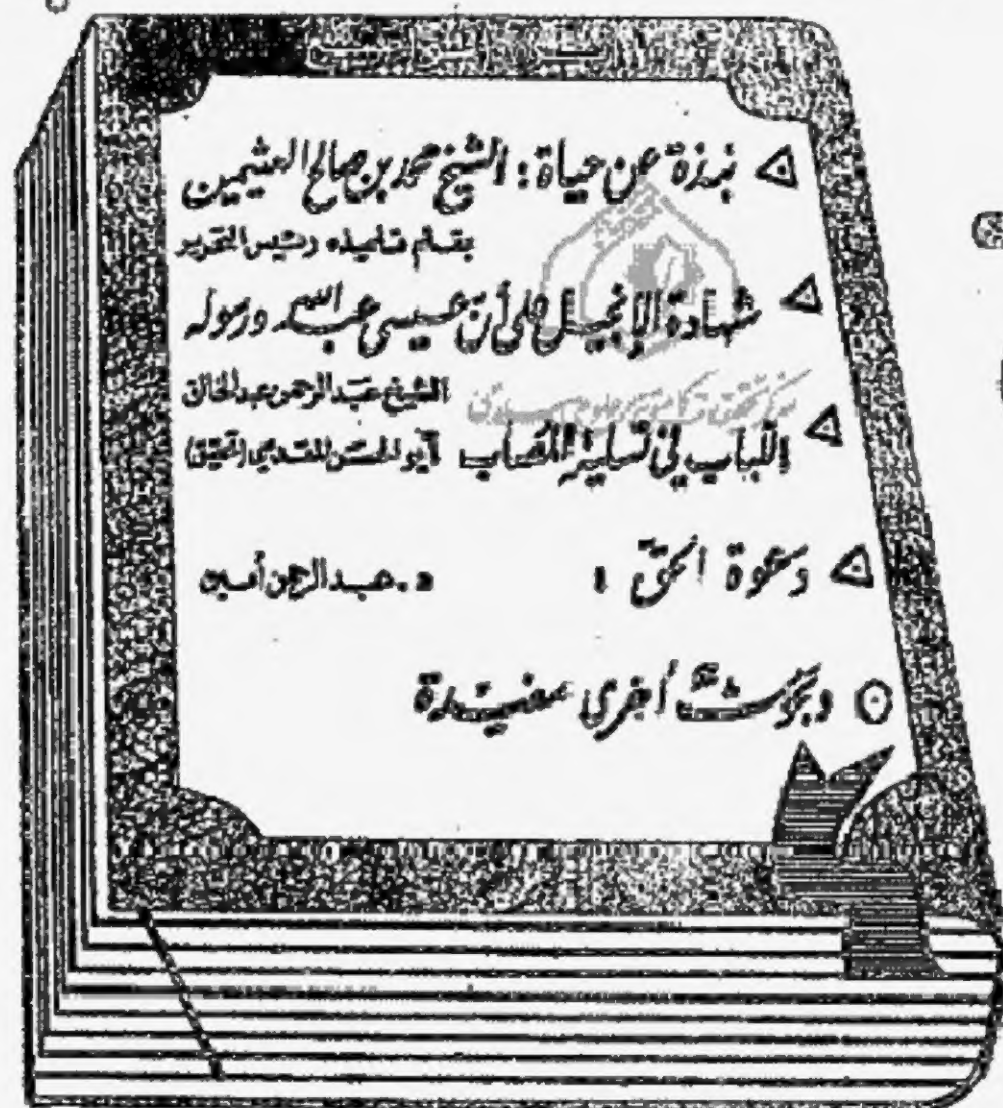 نبذة عن حياة : الشيخ محمد بن صالح العثيمين
بقلم تلميذه رئيس التحرير
شهادة الإنجيل على أن عيسى عبد الله ورسوله
الشيخ عبد الرحمن عبد الخالق
اللباب في تسلية المصاب أبو الحسن المقدسي (تحقيق)
دعوة الحق : د. عبد الرحمن أمين
وبحوث أخرى مفيدة